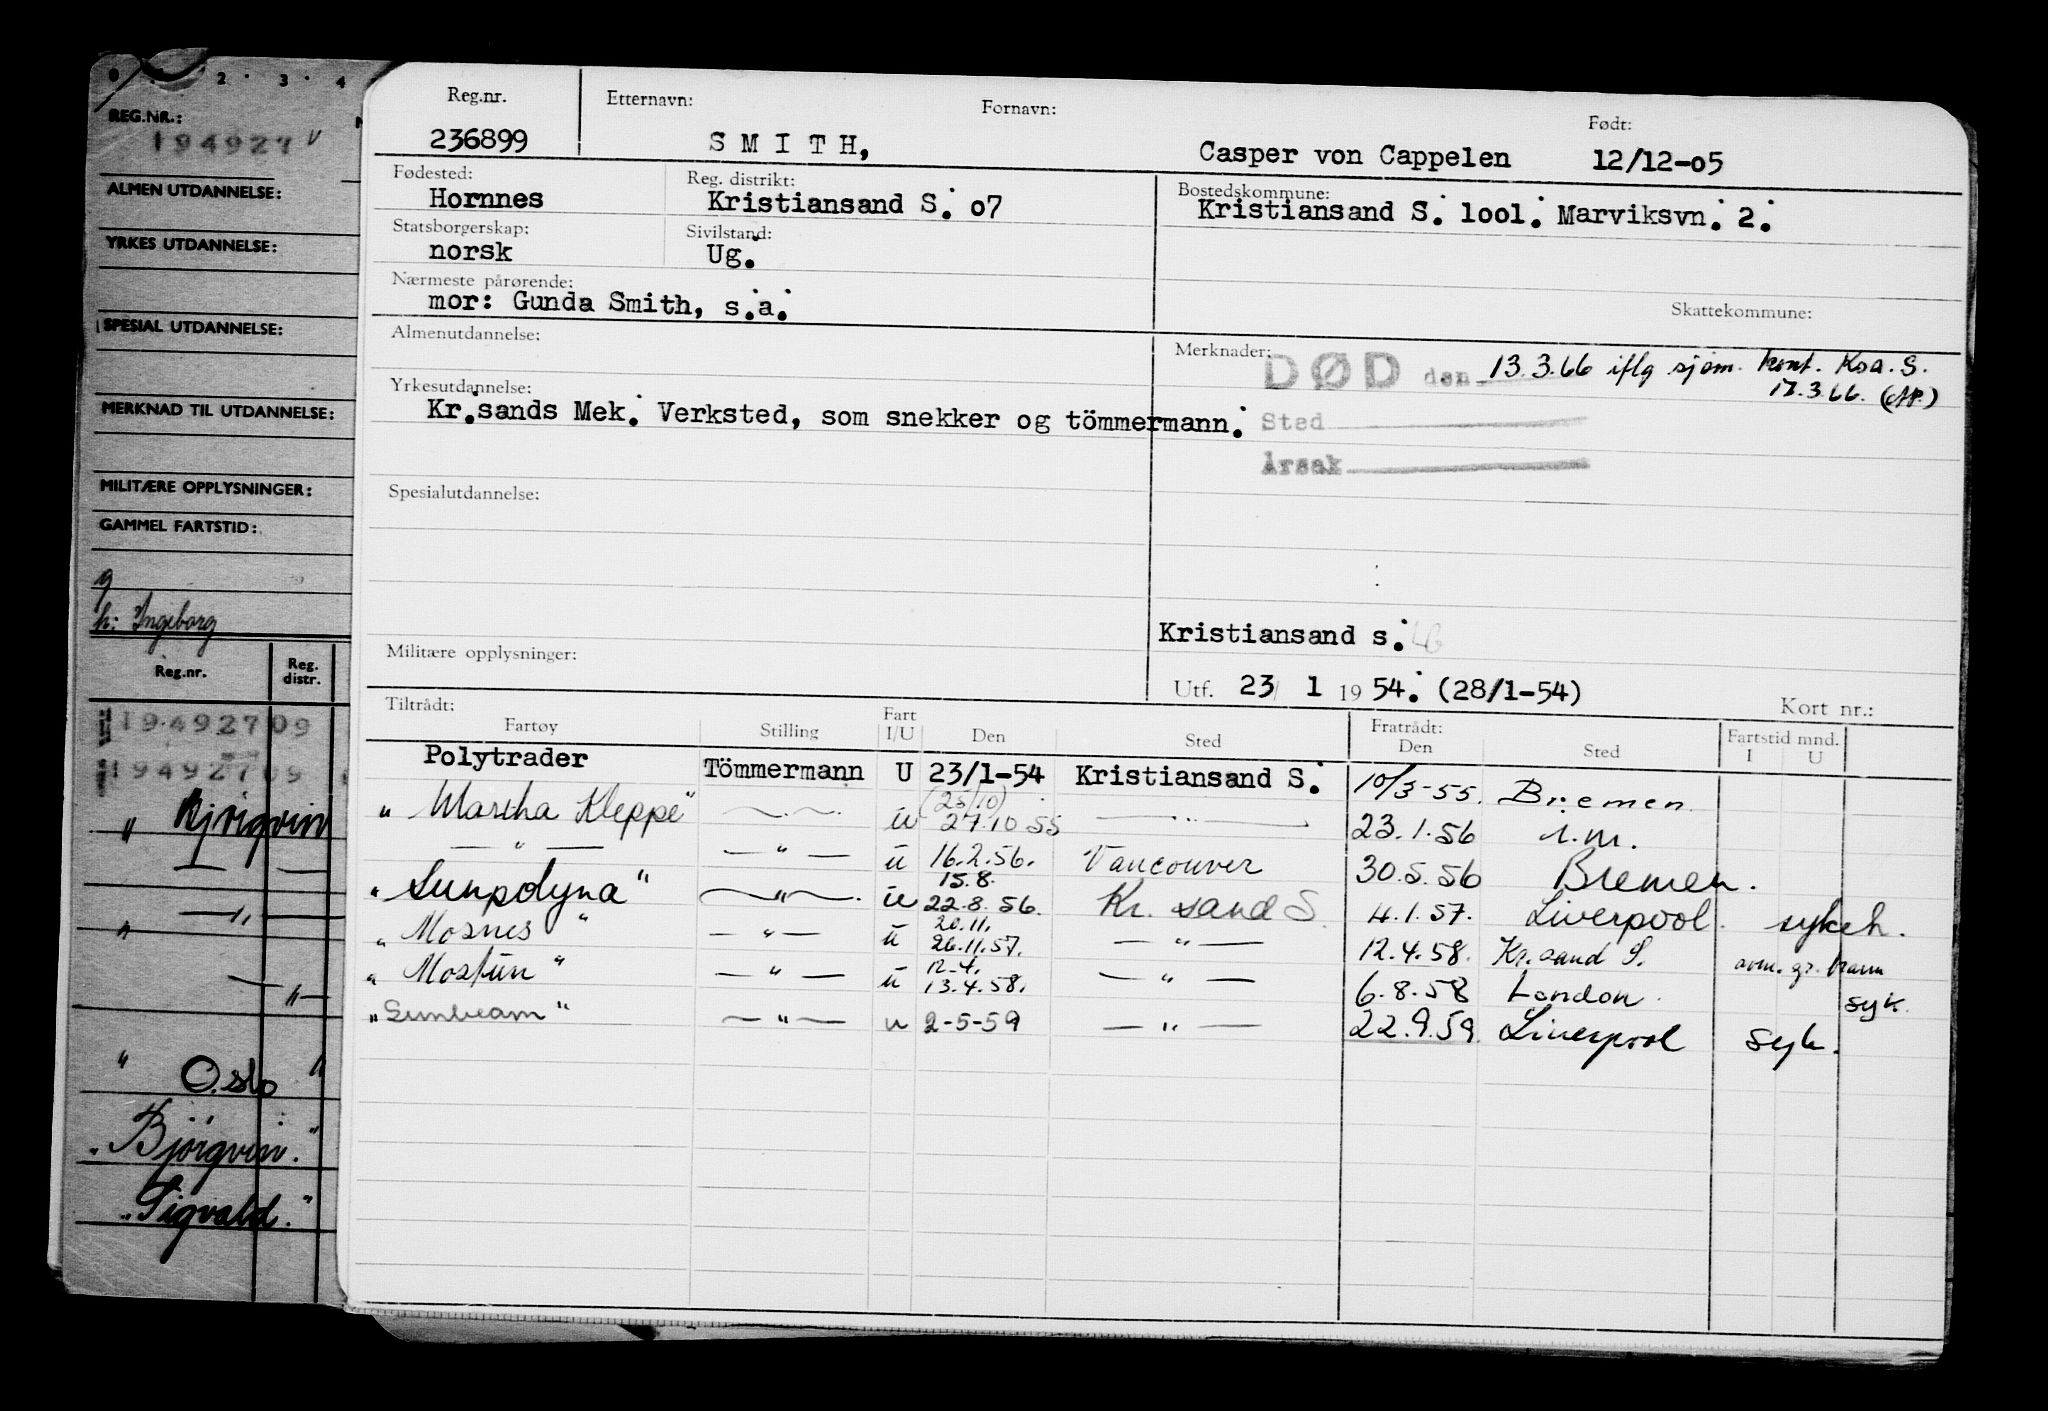 0 2 3 4
REG.NR.:
194927 v
ALMEN UTDANNELSE:
YRKES UTDANNELSE:
SPESIAL UTDANNELSE:
MERKNAD TIL UTDANNELSE:
MILITÆRE OPPLYSNINGER:
GAMMEL FARTSTID:
g
h: Ingeborg
Reg.nr. Reg. distr.
19492709
19492709
" Bjørgvin
— " —
" Oslo "
"Bjørgvin."
"Sigvald."
Reg.nr. Etternavn: Fornavn: Født:
236899 SMITH, Casper von Cappelen 12/12-o5
Fødested: Reg. distrikt: Bostedskommune:
Hornnes Kristiansand S. o7 Kristiansand S. lool. Marviksvn. 2.
Statsborgerskap: Sivilstand:
norsk Ug.
Nærmeste pårørende: Skattekommune:
mor: Gunda Smith, s.a.
Almenutdannelse: Merknader:
DØD den 13.3.66 iflg sjøm. kont. Krsa. S.
17.3.66. (AP.)
Yrkesutdannelse:
Kr.sands Mek. Verksted, som snekker og tömmermann.
Sted
Årsak
Spesialutdannelse:
Kristiansand s.
Militære opplysninger:
Utf. 23/ 1 1954. (28/1-54)
Kort nr.:
Tiltrådt: Fratrådt: Fartstid mnd.
Fartøy Stilling Fart I/U Den Sted Den Sted I U
Polytrader Tömmermann U 23/1-54 Kristiansand S. 10/3-55. Bremen
"Martha Kleppe" — " — u (25/10) 27.10 55 — " — 23.1.56 i.m.
— " — — " — u 16.2.56. Vancouver 30.5.56 Bremen.
"Sunpolyna" — " — u 15.8. 22.8.56. Kr.sand S. 4.1.57. Liverpool sykeh.
"Mosnes" — " — u 20.11. 26.11.57. — " — 12.4.58. Kr.sand S.
"Mostun" — " — u 12.4. 13.4.58. — " — 6.8.58 London syk.
"Sunbeam" — " — u 2-5-59 — " — 22.9.59. Liverpool syk.